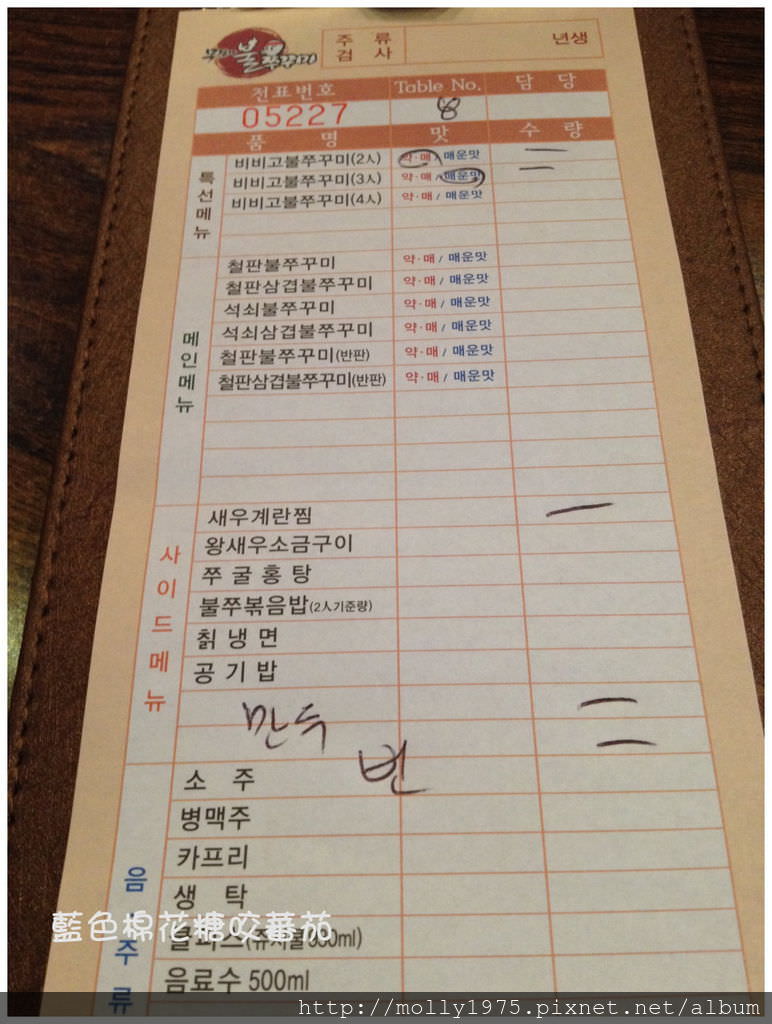 불
쭈꾸미
주 류 년생
검 사
전표번호 Table No. 담 당
05227 8
품 명 맛 수 량
특선메뉴
비비고불쭈꾸미(2人) 약·매 / 매운맛 一
비비고불쭈꾸미(3人) 약·매 / 매운맛 一
비비고불쭈꾸미(4人) 약·매 / 매운맛
메인메뉴
철판불쭈꾸미 약·매 / 매운맛
철판삼겹불쭈꾸미 약·매 / 매운맛
석쇠불쭈꾸미 약·매 / 매운맛
석쇠삼겹불쭈꾸미 약·매 / 매운맛
철판불쭈꾸미(반판) 약·매 / 매운맛
철판삼겹불쭈꾸미(반판) 약·매 / 매운맛
사이드메뉴
새우계란찜 一
왕새우소금구이
쭈 굴 홍 탕
불쭈볶음밥(2人기준량)
칡 냉 면
공 기 밥
만두 二
번
음 주류
소 주
병맥주
카프리
생 탁
음료수 500ml
藍色棉花糖咬蕃茄
http://molly1975.pixnet.net/album